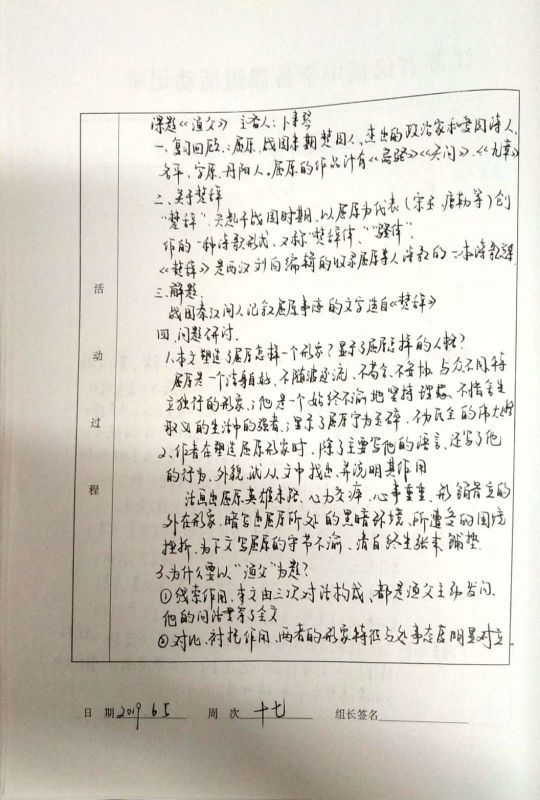 课题《渔父》 主备人:卞素琴
一、复习回顾:屈原,战国末期楚国人,杰出的政治家和爱国诗人
名平,字原,丹阳人。屈原的作品计有《离骚》《天问》、《九章》
二、关于楚辞
"楚辞",兴起于战国时期,以屈原为代表(宋玉、唐勒等)创
作的一种诗歌形式,又称"楚辞体"、"骚体"。
《楚辞》是西汉刘向编辑的收录屈原等人诗歌的一本诗歌
三、解题
战国秦汉间人记叙屈原事迹的文字选自《楚辞》
四、问题研讨
1、本文塑造了屈原怎样一个形象?显示了屈原怎样的人格?
屈原是一个洁身自好、不随波逐流、不苟合、不妥协、与众不同、特
立独行的形象;他是一个始终不渝地坚持理想、不惜舍生
取义的生活中的强者;显示了屈原宁为玉碎,不为瓦全的伟大
2、作者在塑造屈原形象时,除了主要写他的语言,还写了他
的行为、外貌,试从文中找出,并说明其作用
活画出屈原英雄末路、心力交瘁、心事重重、形销骨立的
外在形象,暗写出屈原所处的黑暗环境、所遭受的困境
挫折,为下文写屈原的守节不渝、清白终生张本、铺垫.
3、为什么要以"渔父"为题?
①线索作用,本文由三次对话构成,都是渔父主动发问,
他的问话贯穿了全文
②对比、衬托作用,两者的形象特征与处事态度明显对立.
活动过程
日 期 2019 6 5 周 次 十七 组长签名